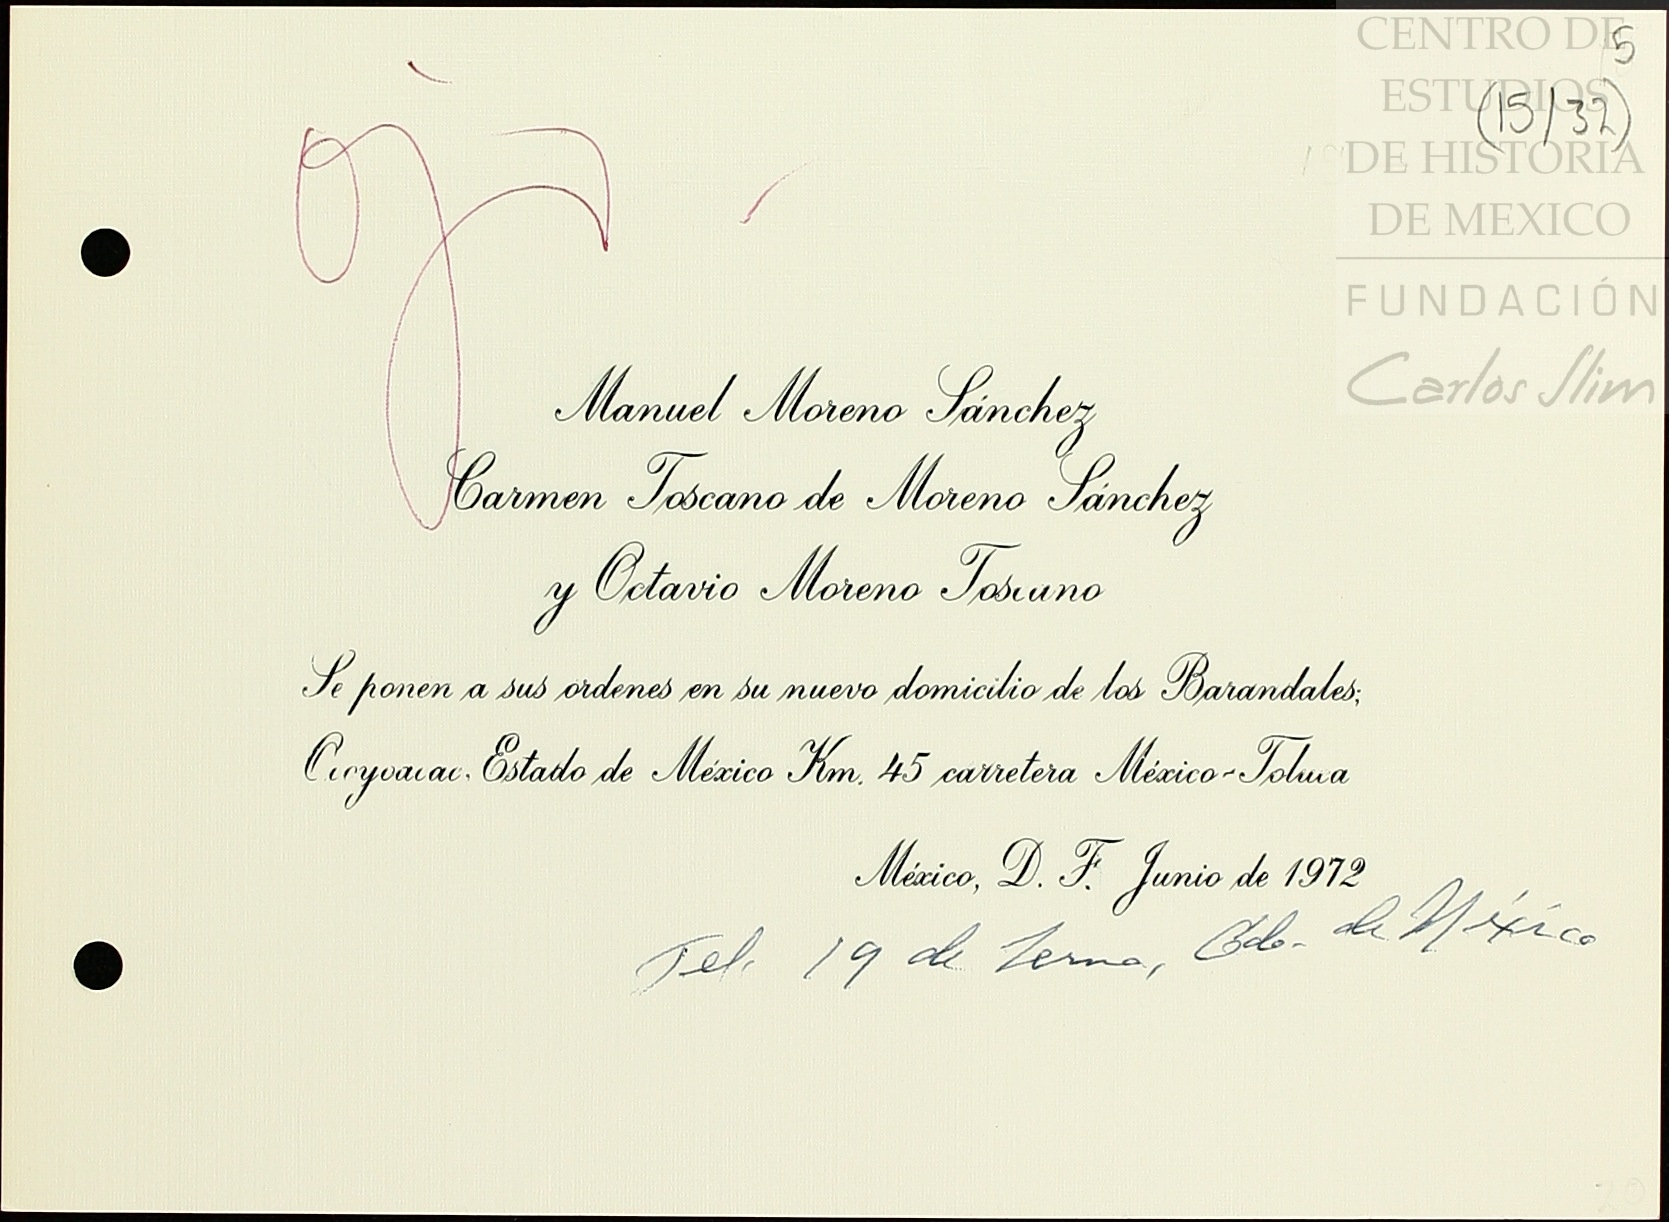 CENTRO DE
ESTUDIOS
DE HISTORIA
DE MEXICO
FUNDACIÓN
Carlos Slim
5
(15/32)
Manuel Moreno Sánchez
Carmen Toscano de Moreno Sánchez
y Octavio Moreno Toscano
Se ponen a sus ordenes en su nuevo domicilio de los Barandales;
Ocoyoacac. Estado de México Km. 45 carretera México-Toluca
México, D. F. Junio de 1972
Tel. 19 de Lerma, Edo. de México